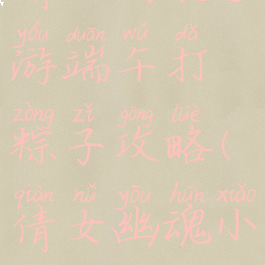 yóu duān wǔ dǎ
游端午打
zòng zǐ gōng lüè
粽子攻略(
qiàn nǚ yōu hún xiǎo
倩女幽魂小